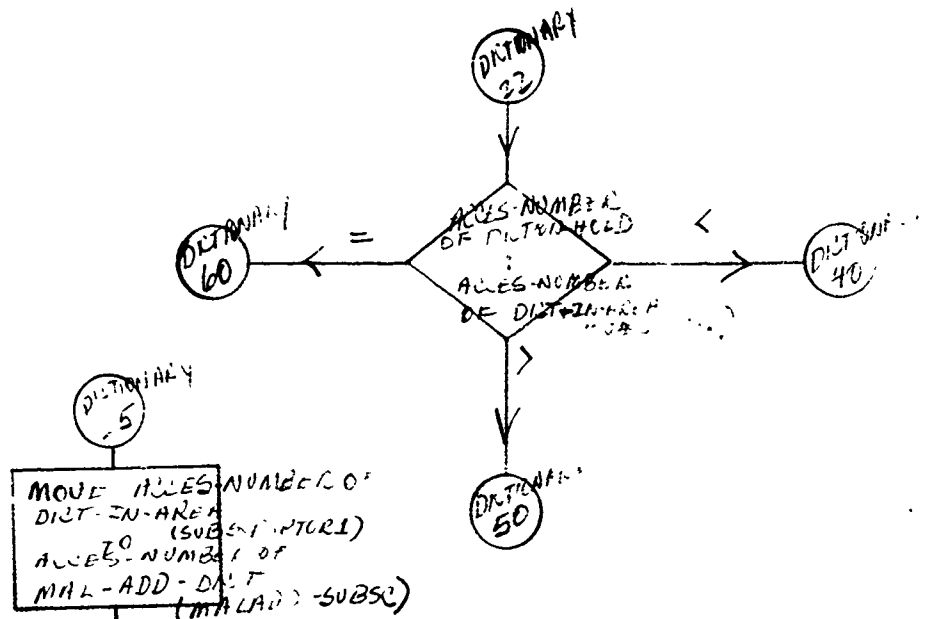 DICTIONARY
22
ACCES-NUMBER
OF DICT-IN-HOLD
:
ACCES-NUMBER
OF DICT-IN-AREA
=
<
>
DICTIONARY
60
40
DICTIONARY
50
DICTIONARY
5
MOVE ACCES-NUMBER OF
DICT-IN-AREA
TO
ACCES-NUMBER OF
MAL-ADD-DICT